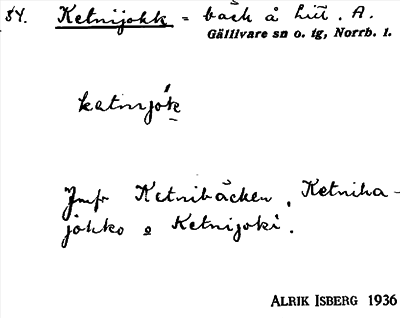 84. Ketnijokk = bäck å Litt. A.
Gällivare sn o. tg, Norrb. l.
katnijǻk
Jmfr Ketnibäcken, Ketniha-
jokko o Ketnijoki.
ALRIK ISBERG 1936